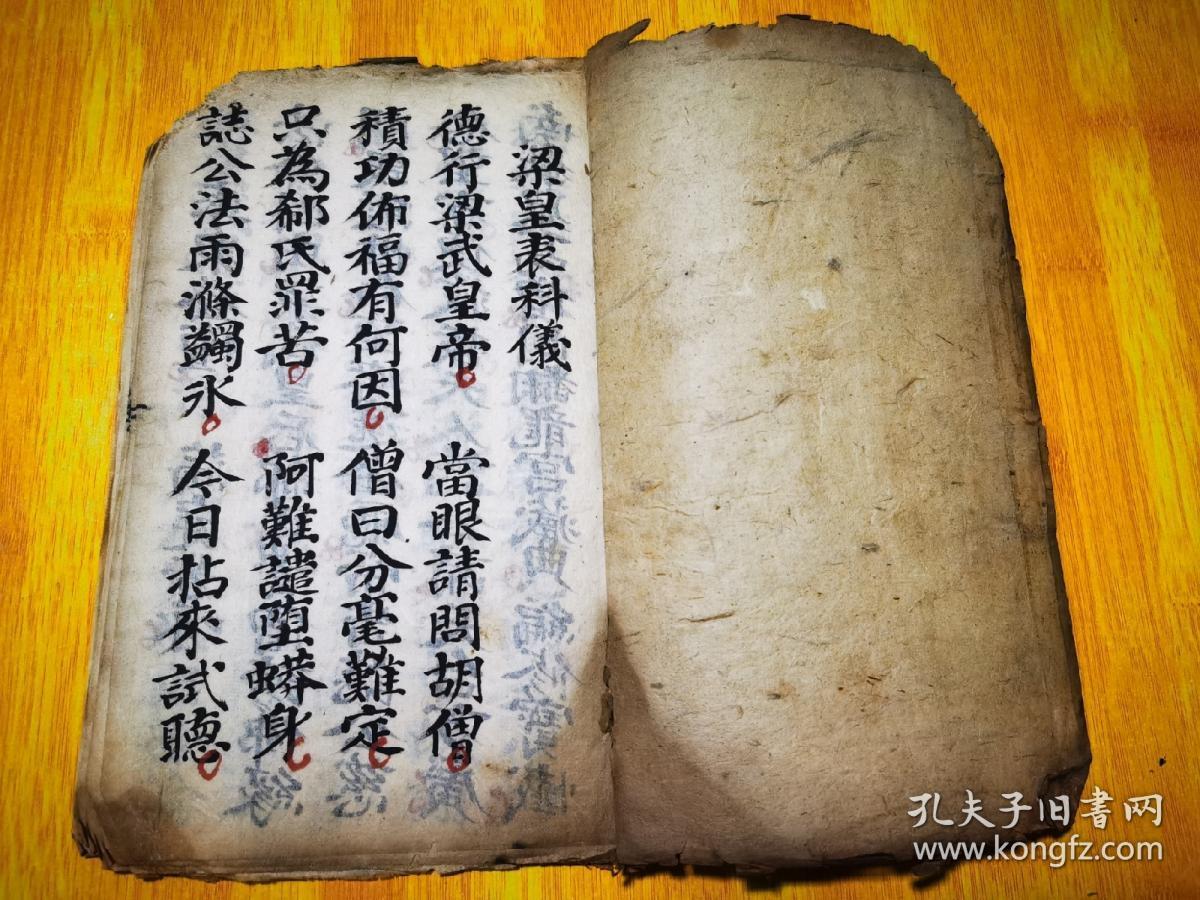 梁皇表科儀
德行梁武皇帝 當眼請問胡僧
積功佈福有何因 僧曰分毫難定
只為郗氏罪苦 阿難譴堕蟒身
誌公法雨滌蠲氷 今日拈來試聽
孔夫子旧书网
www.kongfz.com